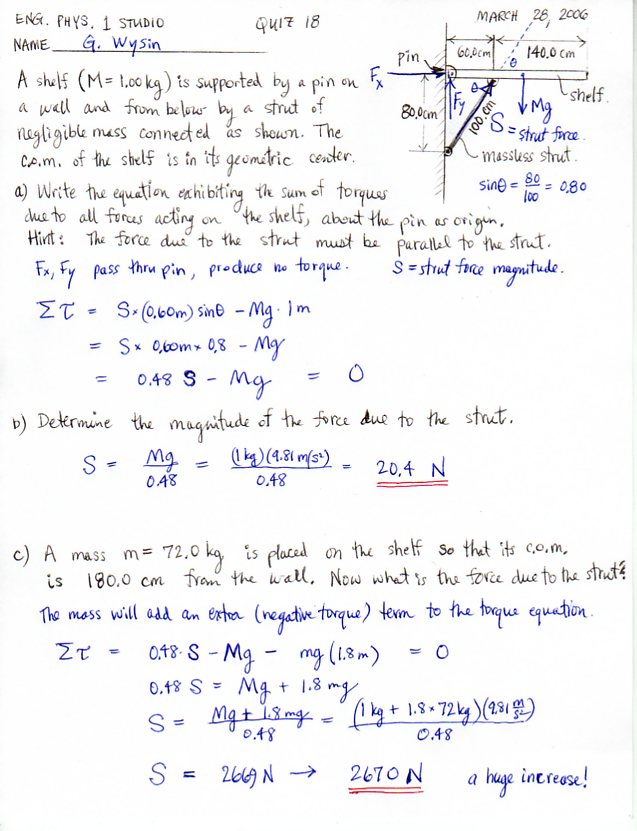 ENG. PHYS. 1 STUDIO QUIZ 18 MARCH 28, 2006
NAME G. Wysin
A shelf (M= 1.00 kg) is supported by a pin on
a wall and from below by a strut of
negligible mass connected as shown. The
c.o.m. of the shelf is in its geometric center.
pin
60.0cm
140.0 cm
θ
Fx
Fy
θ
shelf.
80.0cm
100.cm
Mg
S = strut force.
massless strut.
sinθ = 80/100 = 0.80
a) Write the equation exhibiting the sum of torques
due to all forces acting on the shelf, about the pin as origin.
Hint: The force due to the strut must be parallel to the strut.
Fx, Fy pass thru pin, produce no torque. S = strut force magnitude.
Στ = S×(0.60m) sinθ - Mg · 1m
= S× 0.60m× 0.8 - Mg
= 0.48 S - Mg = 0
b) Determine the magnitude of the force due to the strut.
S = Mg/0.48 = (1 kg)(9.81 m/s²)/0.48 = 20.4 N
c) A mass m= 72.0 kg is placed on the shelf so that its c.o.m.
is 180.0 cm from the wall. Now what is the force due to the strut?
The mass will add an extra (negative torque) term to the torque equation.
Στ = 0.48·S - Mg - mg (1.8m) = 0
0.48 S = Mg + 1.8 mg
S = Mg + 1.8mg/0.48 = (1 kg + 1.8×72kg)(9.81 m/s²)/0.48
S = 2669 N → 2670 N a huge increase!